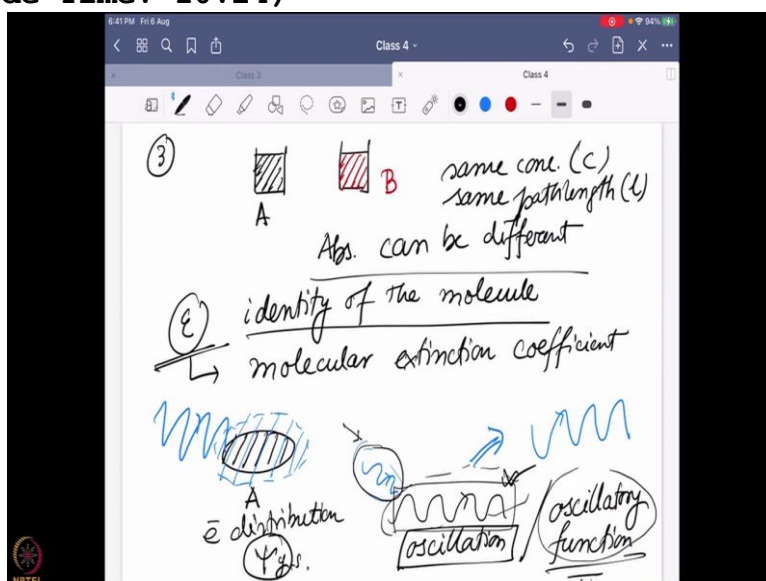 6:41 PM Fri 6 Aug
94%
Class 4
Class 3
Class 4
③
A
B
same conc. (C)
same pathlength (l)
Abs. can be different
ε
identity of the molecule
molecular extinction coefficient
A
ē distribution
Ψg.s.
oscillation
oscillatory
function
NPTEL